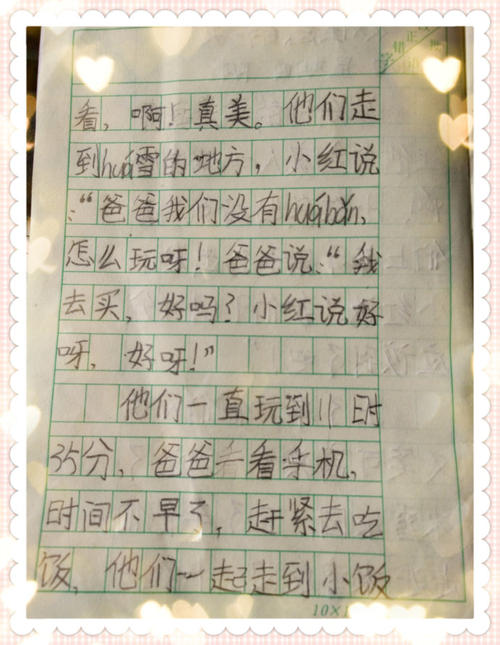 看，啊！真美。他们走
到huá雪的地方，小红说
：“爸爸我们没有huábǎn，
怎么玩呀！爸爸说：“我
去买，好吗？小红说好
呀，好呀！”
他们一直玩到11时
35分，爸爸看手机，
时间不早了，赶紧去吃
饭，他们一起走到小饭